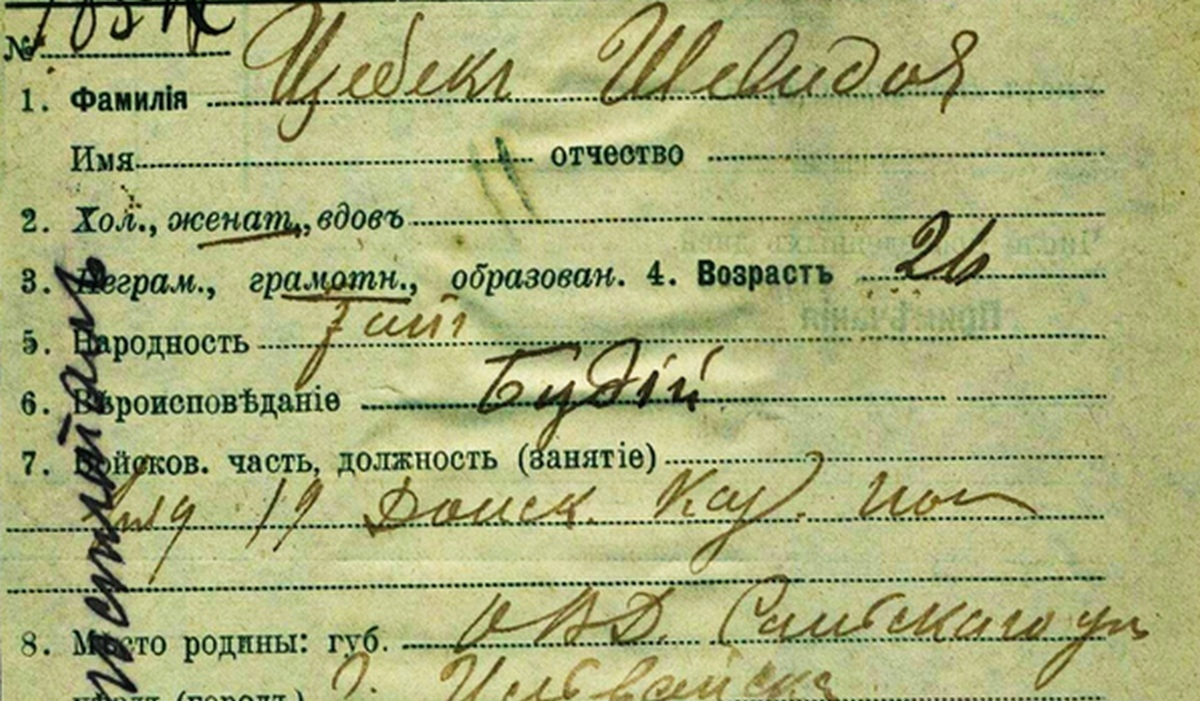 №
1. Фамилія Цебекъ Шевидоя
Имя отчество
2. Хол., женат., вдовъ
3. Неграм., грамотн., образован. 4. Возрастъ 26
5. Народность
6. Вѣроисповѣданіе Будій
7. Войсков. часть, должность (занятіе)
19 Донск. Каз. пол
8. Мѣсто родины: губ. ОВД. Сальскаго
уѣздъ (городъ)